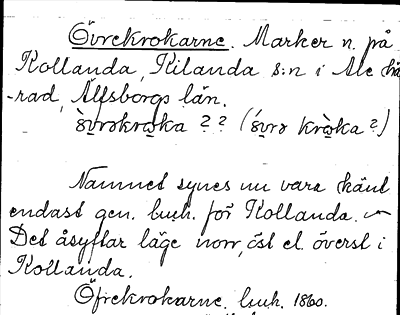 Övrekrokarne. Marker n. på
Kollanda, Kilanda s:n i Ale hä
-rad, Älfsborgs län.
? ? ( ?)
Namnet synes nu vara känt
endast gen. huh. för Kollanda.
Det åsyftar läge norr, öst el. överst i
Kollanda.
Öfrekrokarne. huh. 1860.